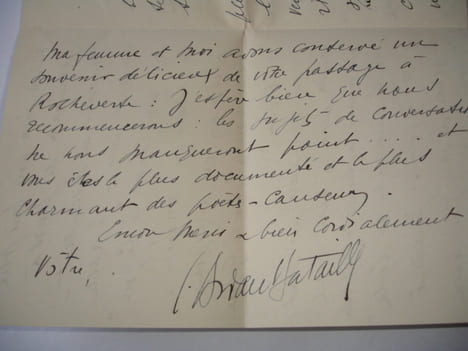 Ma femme et moi avons conservé un
souvenir délicieux de votre passage à
Rocheverte : J'espère bien que nous
recommencerons : les sujets de conversation
ne nous manqueront point ..... et
vous êtes le plus documenté et le plus
charmant des poëtes-causeurs.
Encore merci & bien cordialement
Votre,